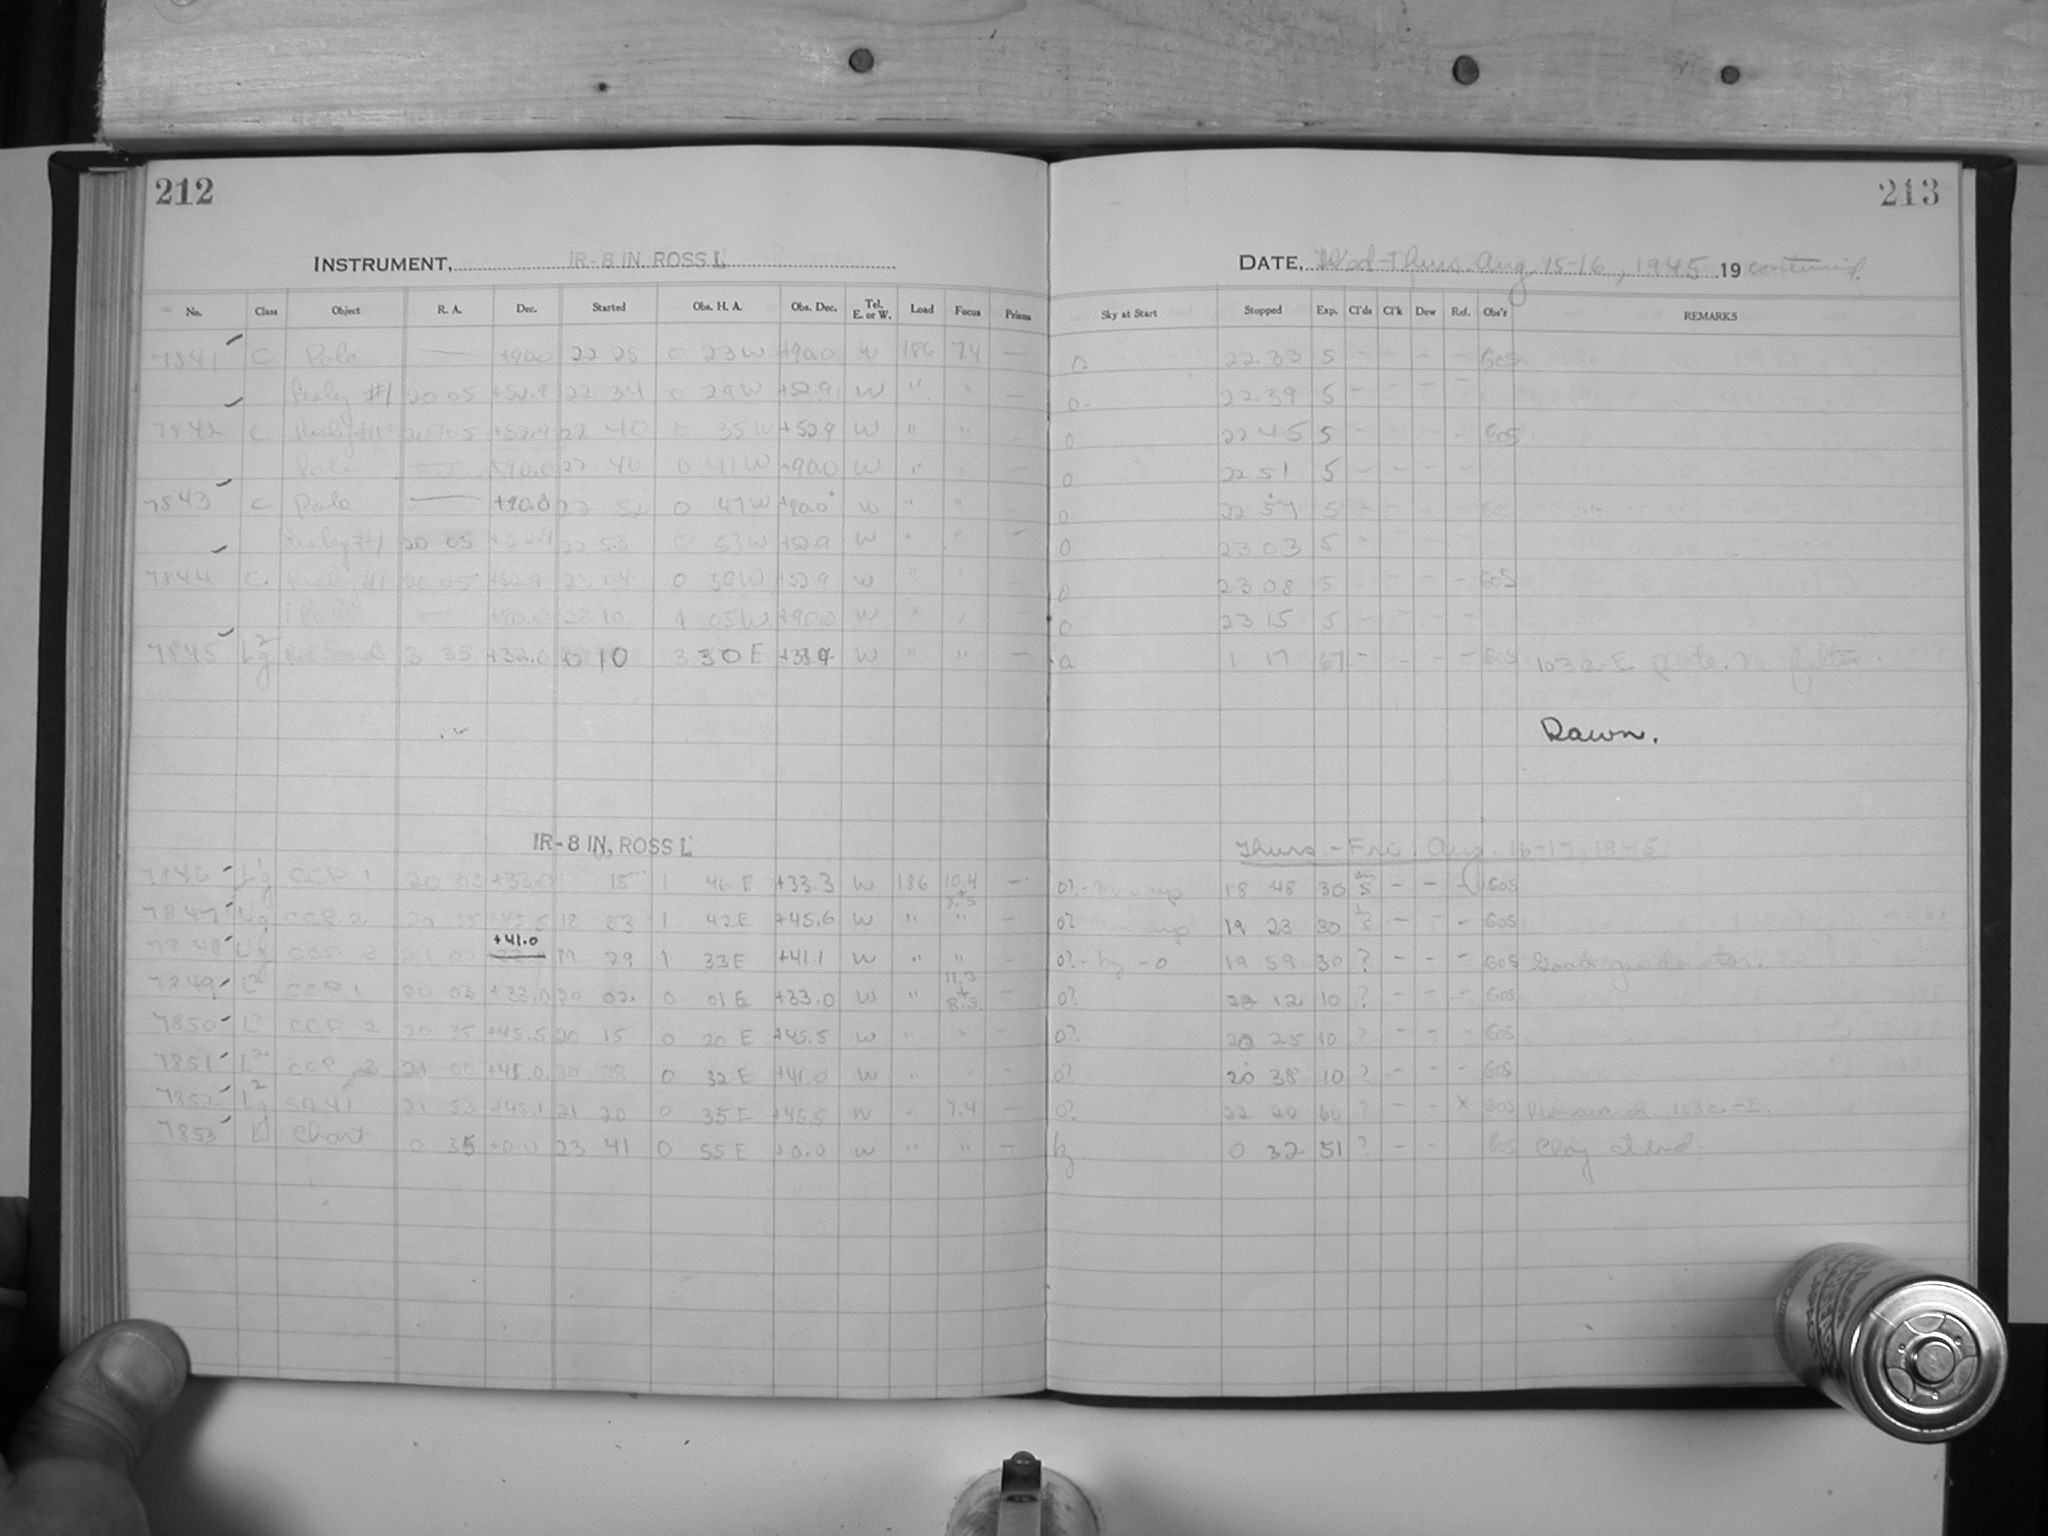 212
213
INSTRUMENT, IR-8 IN. ROSS L
DATE, Wed-Thurs. Aug. 15-16, 1945 19 continued
No. Class Object R. A. Dec. Started Obs. H. A. Obs. Dec. Tel. E. or W. Load Focus Prisms Sky at Start Stopped Exp. Cl'ds Cl'k Dew Ref. Obs'r REMARKS
7841 C Pole — +90.0 22 28 0 23 W +90.0 W 186 7.4 — 0 22 33 5 - - - - GOS
#1 20 05 +52.9 22 34 0 29 W +52.9 W " " — 0 22 39 5 - - - -
7842 C #1 20 05 +52.9 22 40 0 35 W +52.9 W " " — 0 22 45 5 - - - - GOS
Pole — +90.0 22 46 0 41 W +90.0 W " " — 0 22 51 5 - - - -
7843 C Pole — +90.0 22 52 0 47 W +90.0 W " " — 0 22 57 5 - - - - GOS
#1 20 05 +52.9 22 58 0 53 W +52.9 W " " — 0 23 03 5 - - - -
7844 C #1 20 05 +52.9 23 04 0 W +52.9 W " " — 0 23 08 5 - - - - GOS
Pole — +90.0 23 10 1 05 W +90.0 W " " — 0 23 15 5 - - - -
7845 Lg2 3 35 +32.0 0 10 3 30 E W " " — a 1 17 67 - - - - GOS 103a-E plate. No filter.
Dawn.
IR-8 IN. ROSS L
Thurs.-Fri. Aug. 16-17, 1945
7846 CCP 1 20 03 +33.0 18 1 46 E +33.3 W 186 10.4 — 0?- 18 48 30 - - GOS
7847 CCP 2 20 35 +45.5 18 53 1 42 E +45.6 W " " — 0? 19 23 30 - - - GOS
+41.0
7848 CCP 3 21 00 19 29 1 33 E +41.1 W " " 0? - hz - 0 19 59 30 ? - - - GOS Good guide star.
7849 L2 CCP 1 20 03 +33.0 20 02 0 01 E +33.0 W " 11.3 — 0? 20 12 10 ? - - - GOS
7850 L2 CCP 2 20 35 +45.5 20 15 0 20 E +45.5 W " " — 0? 20 25 10 ? - - - GOS
7851 L2 CCP 3 21 00 +41.0 20 28 0 32 E +41.0 W " " — 0? 20 38 10 ? - - - GOS
7852 Lg2 SA 41 21 53 +45.1 21 20 0 35 E +45.5 W " 7.4 — 0? 22 20 60 ? - - X GOS 103a-E.
7853 Chart 0 35 +0.0 23 41 0 55 E +0.0 W " " — hz 0 32 51 ? - - GOS Cldy at end.